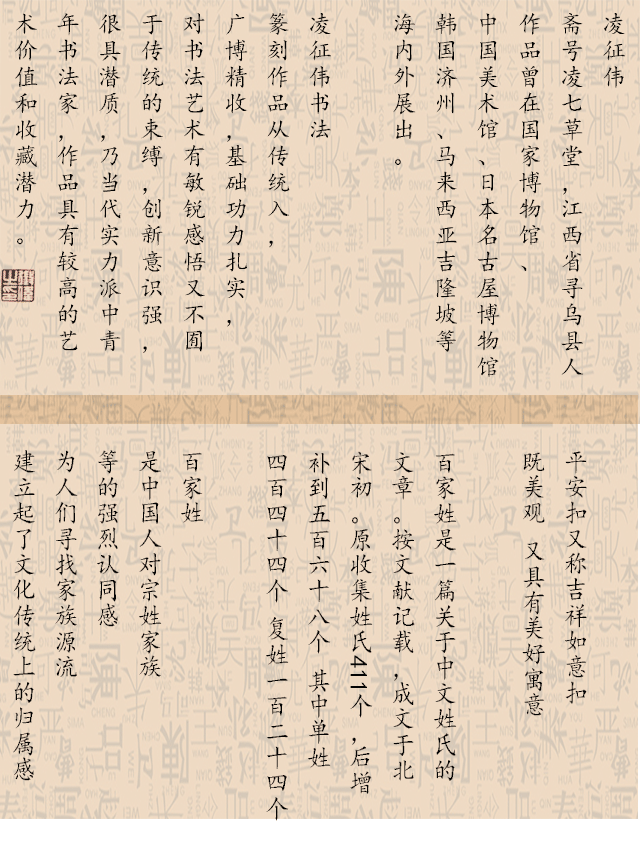 凌征伟
斋号凌七草堂,江西省寻乌县人
作品曾在国家博物馆、
中国美术馆、日本名古屋博物馆
韩国济州、马来西亚吉隆坡等
海内外展出。
凌征伟书法
篆刻作品从传统入,
广博精收,基础功力扎实,
对书法艺术有敏锐感悟又不囿
于传统的束缚,创新意识强,
很具潜质,乃当代实力派中青
年书法家,作品具有较高的艺
术价值和收藏潜力。
平安扣又称吉祥如意扣
既美观 又具有美好寓意
百家姓是一篇关于中文姓氏的
文章。按文献记载,成文于北
宋初。原收集姓氏411个,后增
补到五百六十八个 其中单姓
四百四十四个 复姓一百二十四个
百家姓
是中国人对宗姓家族
等的强烈认同感
为人们寻找家族源流
建立起了文化传统上的归属感